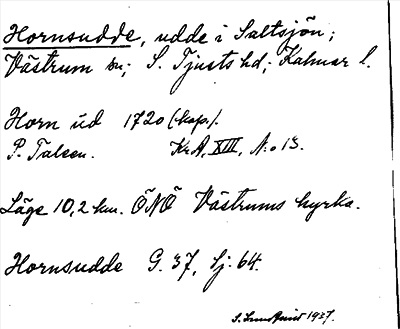 Hornsudde, udde i Saltsjön;
Västrum sn; S. Tjusts hd; Kalmar l.
Horn ud 1720 (kop.).
P. Tuleen. KrA, XIII, N:o 13.
Läge 10,2 km. ÖNÖ Västrums kyrka.
Hornsudde G. 37, Sj. 64.
1937.